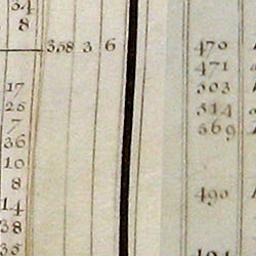 34
8
358 3 6
17
25
7
36
10
8
14
38
35
470
471
503
514
569
490